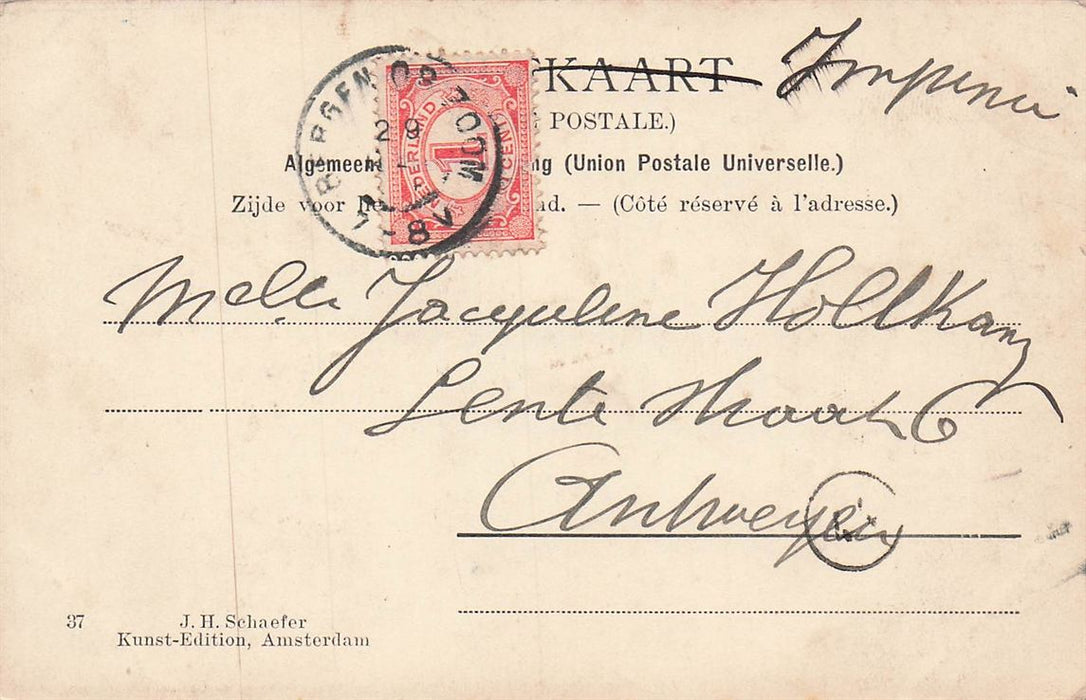 KAART Imprimé
POSTALE.)
Algemeen ng (Union Postale Universelle.)
Zijde voor nd. — (Côté réservé à l'adresse.)
BERGEN OP ZOOM
29
7-8V
NEDERLAND
1
CENT
Melle Jacqueline Hollkanz
Lente straat 6
Antwerpen
37
J. H. Schaefer
Kunst-Edition, Amsterdam